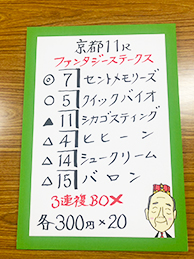 京都11R
ファンタジーステークス
◎ 7 セントメモリーズ
○ 5 クイックバイオ
▲ 11 シカゴスティング
△ 4 ヒヒーン
△ 14 シュークリーム
△ 15 バロン
3連複BOX
各300円×20